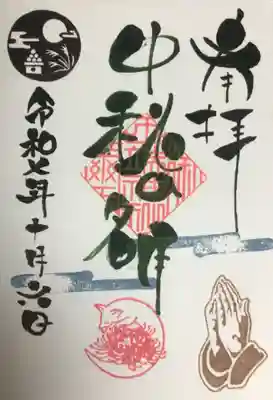 奉拝
中秋の名月
令和七年十月六日